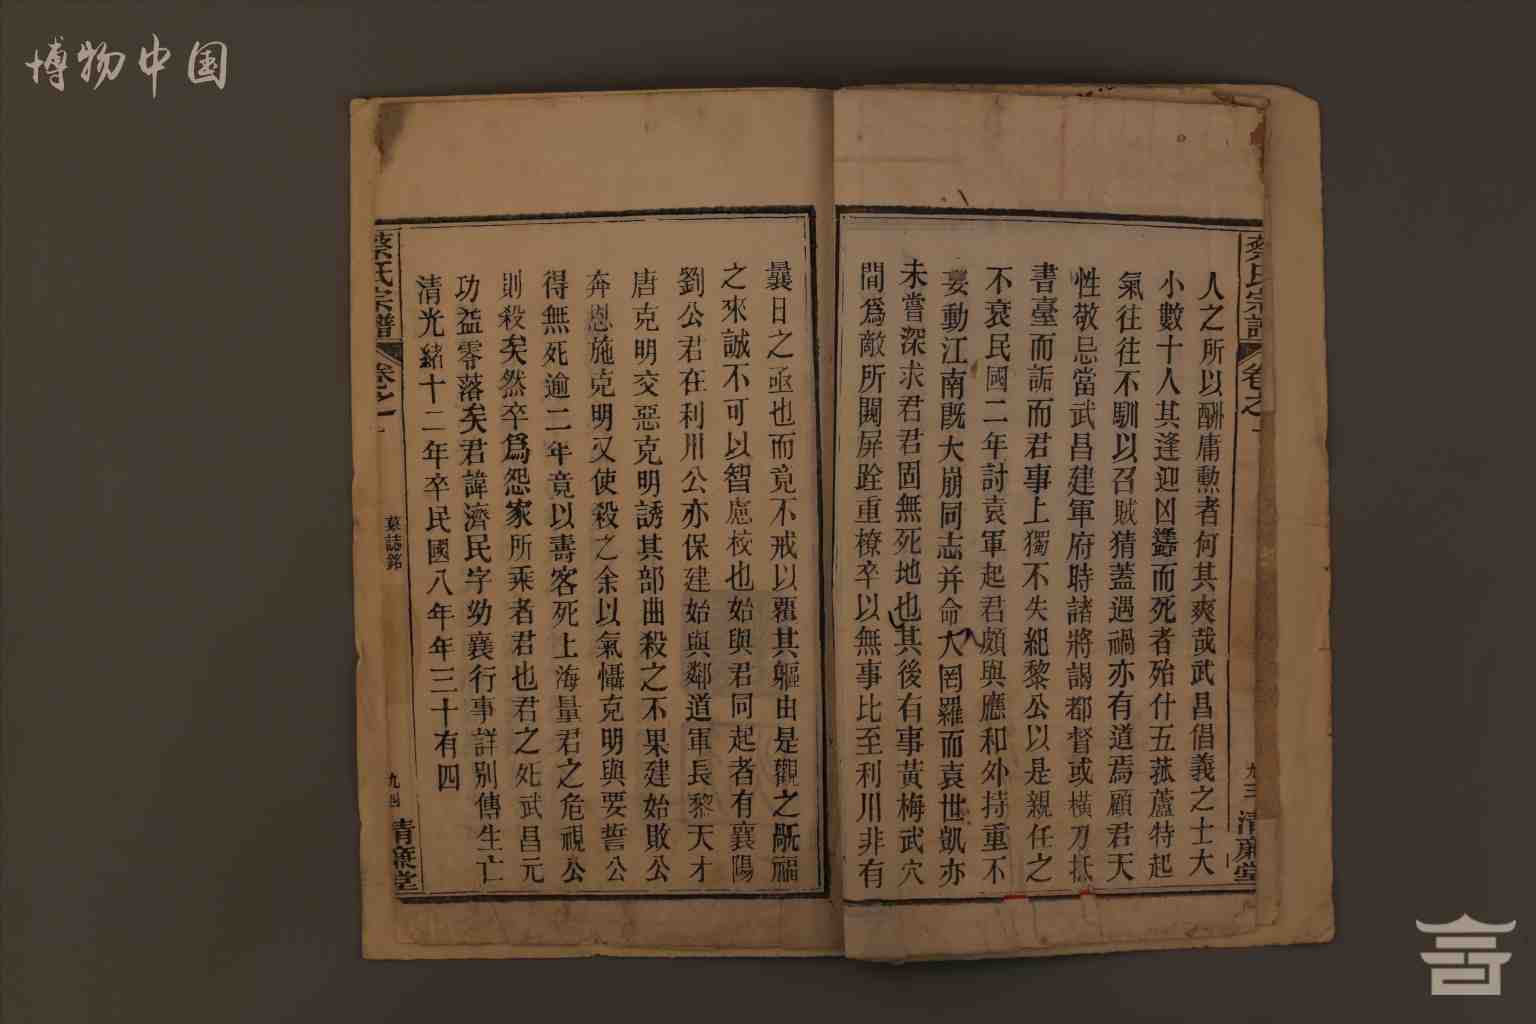 博物中国
蔡氏宗譜 卷之一 九三 清廉堂
人之所以酬庸勲者何其爽哉武昌倡義之士大
小數十人其逢迎凶而死者殆什五菰蘆特起
氣往往不馴以召賊猜蓋遇禍亦有道焉顧君天
性敬忌當武昌建軍府時諸將謁都督或橫刀抵
書臺而詬而君事上獨不失紀黎公以是親任之
不衰民國二年討袁軍起君頗與應和外持重不
妄動江南既大崩同志并命大罔羅而袁世凱亦
未嘗深求君君固無死地也其後有事黃梅武穴
間爲敵所闕屏跧重橑卒以無事比至利川非有
曩日之亟也而竟不戒以覆其軀由是觀之旤福
之來誠不可以智慮校也始與君同起者有襄陽
劉公君在利川公亦保建始與鄰道軍長黎天才
唐克明交惡克明誘其部曲殺之不果建始敗公
奔恩施克明又使殺之余以氣懾克明與要誓公
得無死逾二年竟以壽客死上海量君之危視公
則殺矣然卒爲怨家所乘者君也君之死武昌元
功益零落矣君諱濟民字幼襄行事詳別傳生亡
清光緒十二年卒民國八年年三十有四
蔡氏宗譜 卷之一 墓誌銘 九四 清廉堂